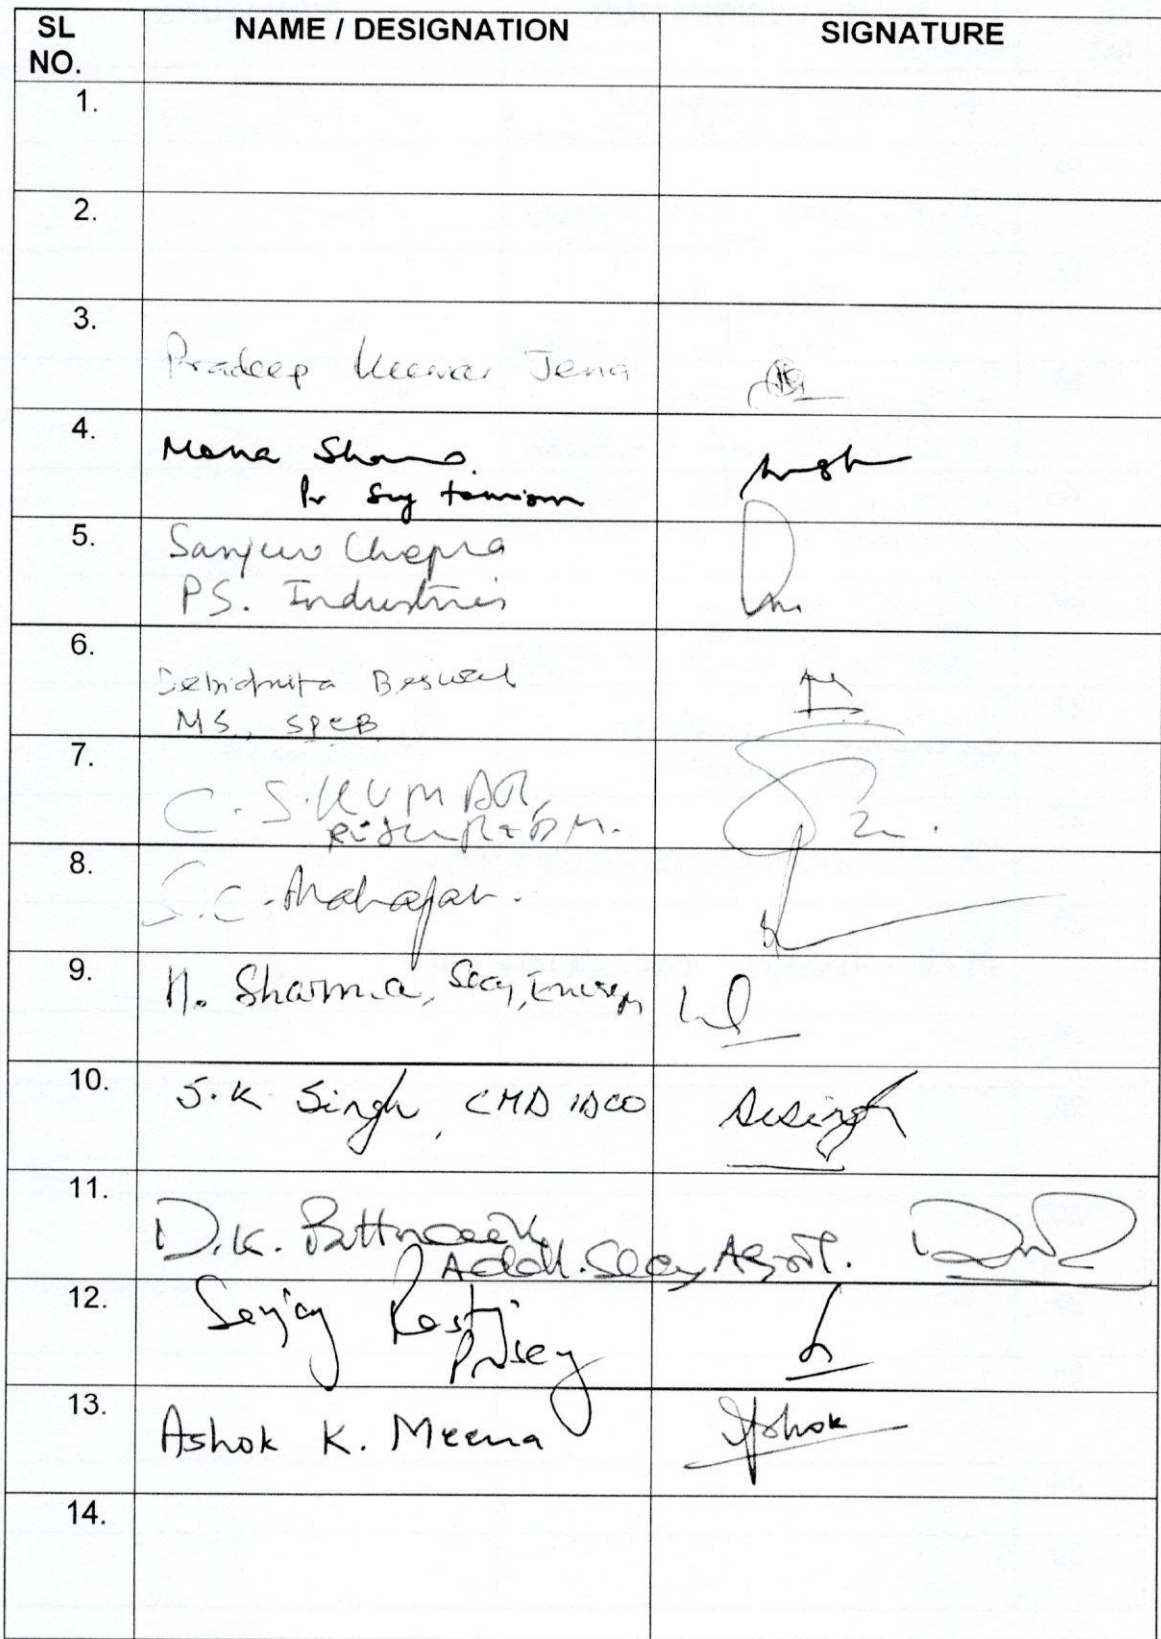 SL NO. NAME / DESIGNATION SIGNATURE
1.
2.
3. Pradeep Kumar Jena
4. Mona Sharma.
Pr Secy tourism
5. Sanjeev Chopra
PS. Industries
6. Debidutta Biswal
MS, SPCB
7. C. S. KUMAR,
8. S.C. Mahajan.
9. N. Sharma, Secy,
10. S.K Singh, CMD IDCO
11. D.K. Pattnaik
Addl. Secy
12. Sanjay Rastogi
Pr Secy
13. Ashok K. Meena Ashok
14.